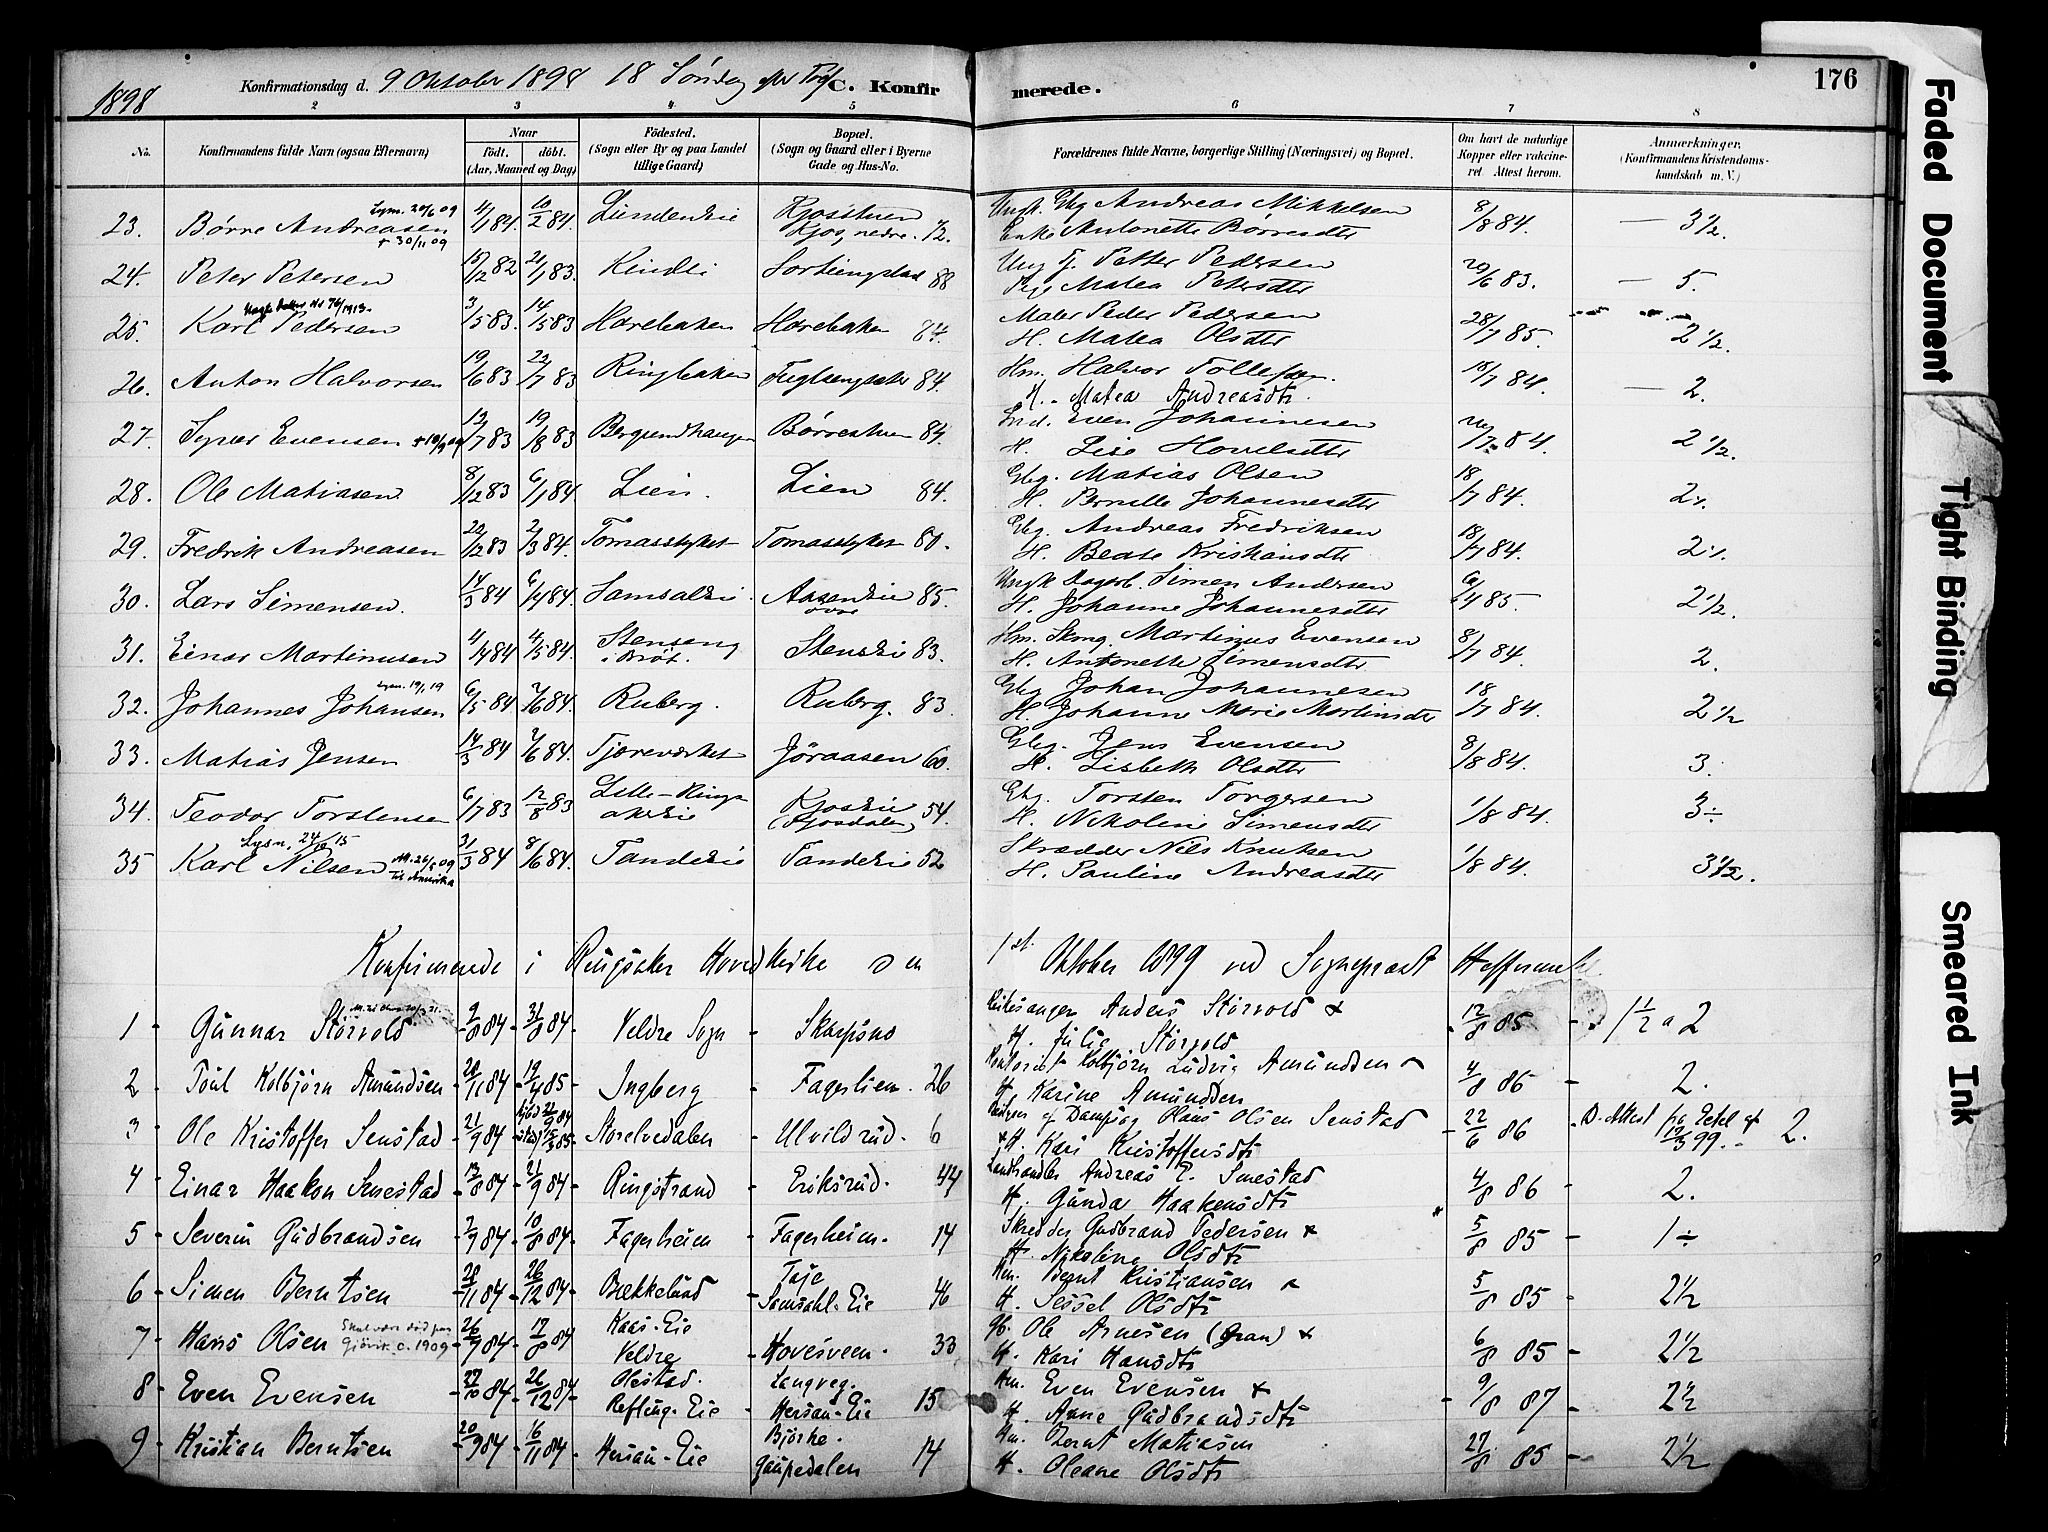 1898 Konfirmationsdag d. 9 Oktober 1898 18 Søndag efter Tref. C. Konfirmerede. 176
2 3 4 5 6 7 8
No. Konfirmandens fulde Navn (ogsaa Efternavn) Naar födt. döbt. (Aar, Maaned og Dag) Födested. (Sogn eller By og paa Landet tillige Gaard) Bopæl. (Sogn og Gaard eller i Byerne Gade og Hus-No. Forældrenes fulde Navne, borgerlige Stilling (Næringsvei) og Bopæl. Om havt de naturlige Kopper eller vaccineret. Attest herom. Anmærkninger. (Konfirmandens Kristendomskundskab m. V.)
Lysn. 20/6 09
23. Børre Andreasen 4/1 84. 10/2 84. Lundeneie Kjosstuen Ungk. Gbg Andreas Mikkelsen 8/8 84. — 3½.
+ 30/11 09 Kjos, nedre. 72. Enke Antonette Børresdtr
24. Peter Petersen 15/12 82 21/1 83. Kindli 88 Ung Petter Pedersen 20/6 83. — 5.
Pige Matea Petersdtr
25. Karl Pedersen 3/5 83. 14/5 83 Harebaken Harebaken 84. Maler Peder Pedersen 28/7 85. 2 ½.
H. Matea Olsdtr
26. Anton Halvorsen 19/6 83 22/7 83 Ringbaken Fuglsengsaker 84. Hm. Halvor Tollefsen 18/7 84. — 2.
H. Matea Andreasdtr.
27. Syver Evensen + 10/9 09 13/7 83 19/8 83 Bergsundhaugen Børrestuen 84. Ind. Even Johannesen 84. 2 ½.
H. Lise Hovelsdtr
28. Ole Matiasen 8/12 83 6/1 84. Lien. Lien 84. Gbg. Matias Olsen 18/7 84. 2 ⁒
H. Pernille Johannesdtr
29. Fredrik Andreasen 22/12 83 2/3 84. Tomasstykket Tomasstyket 80. Gbg. Andreas Fredriksen 18/7 84. 2 ⁒
H. Beate Kristiansdtr
30. Lars Simensen. 14/3 84 6/4 84. Samsaleie. Aaseneie 85. Ungk Dagarb. Simen Andersen 6/4 85. 2 ½.
øvre H. Johanne Johannesdtr
31. Einar Martinusen 4/4 84 4/5 84. Stenseng Stenseie 83. Hm. Skomg. Martinus Evensen 8/7 84. 2.
i Brøt. H. Antonette Simensdtr
Lysn. 19/1 19
32. Johannes Johansen 6/5 84 2/6 84. Ruberg. Ruberg. 83. Gbg Johan Johannesen 18/7 84. 2 ½
H. Johanne Marie Martinsdtr
33. Matias Jensen 14/3 84 2/6 84. Tjæreværket Jøraasen 60. Gbg. Jens Evensen 8/8 84. 3.
H. Lisbeth Olsdtr
34. Teodor Torstensen 6/7 83 12/8 83 Lille-Rings- Kjoseie 54. Gbg. Torsten Torgersen 1/8 84. 3 ÷
akereie (Kjosdalen) H. Nikoline Simensdtr
Lysn. 24/ 15
35 Karl Nilsen 31/3 84 8/6 84. Tandeeie Tandeeie 52 Skrædder Nils Knutsen 1/8 84. 3½.
Att. 26/5 09 til Amerika H. Pauline Andreasdtr
Konfirmerede i Ringsaker Hovedkirke den 1st. Oktober 1899 ved Sogneprest Heffermehl.
1 - Gunnar Størvold 9/8 84 31/8 84 Veldre Sogn - Skarpsno Kirkesanger Anders Størvold & 12/8 85 - 1½ a 2
H. Julie Størvold
2 - Poul Kolbjørn Amundsen 20/11 84 19/4 85 - Ingberg - Fagerlien. 26 Kontorist Kolbjørn Ludvig Amundsen & 4/8 86 - 2.
H Karine Amundsen
3 - Ole Kristoffer Senstad 21/9 84 hjdøbt 22/9 84 15/3 85 Storelvedalen - Ulvildrud. 6 af Dampsag Olaus Olsen Senstad 22/6 86 - D. Attest fra 12/3 99. - 2.
& H. Kari Kristoffersdtr
4 - Einar Haakon Smestad 13/8 84 21/9 84 - Ringstrand - Eriksrud. 44 Landhandler Andreas E. Smestad 4/8 86 - 2.
H. Gunda Haakensdtr
5 - Severin Gudbrandsen 2/9 84 10/8 84. - Fagerheim - Fagerheim. 14 Skredder Gudbrand Pedersen & 5/8 85 - 1 ÷
H. Nikoline Olsdtr
6 - Simen Berntsen 28/11 84 26/12 84 - Bækkelund Taje Hm. Bernt Kristiansen & 5/8 85 - 2½
- Samsahl-Eie 46 H. Sessel Olsdtr
7 - Hans Olsen Skal være død paa Gjøvik c. 1909 26/7 84 17/8 84 Kaas-Eie Gb. Ole Arnesen (Gran) & 6/8 85 - 2½
Veldre - Hovesveen. 33 H. Kari Hansdtr
8 - Even Evensen 27/10 84 26/12 84 Olestad. Langveg. Hm. Even Evensen & 9/8 87 - 2½
Refling-Eie - Hersau-Eie 15 H. Anne Gudbrandsdtr
9 - Kristian Berntsen 20/9 84 16/11 84 - Hersau-Eie Bjørke. Hm. Bernt Matiasen 27/8 85 - 2½
Gaupedalen 14 H. Oleane Olsdtr
Faded Document
Tight Binding
Smeared Ink